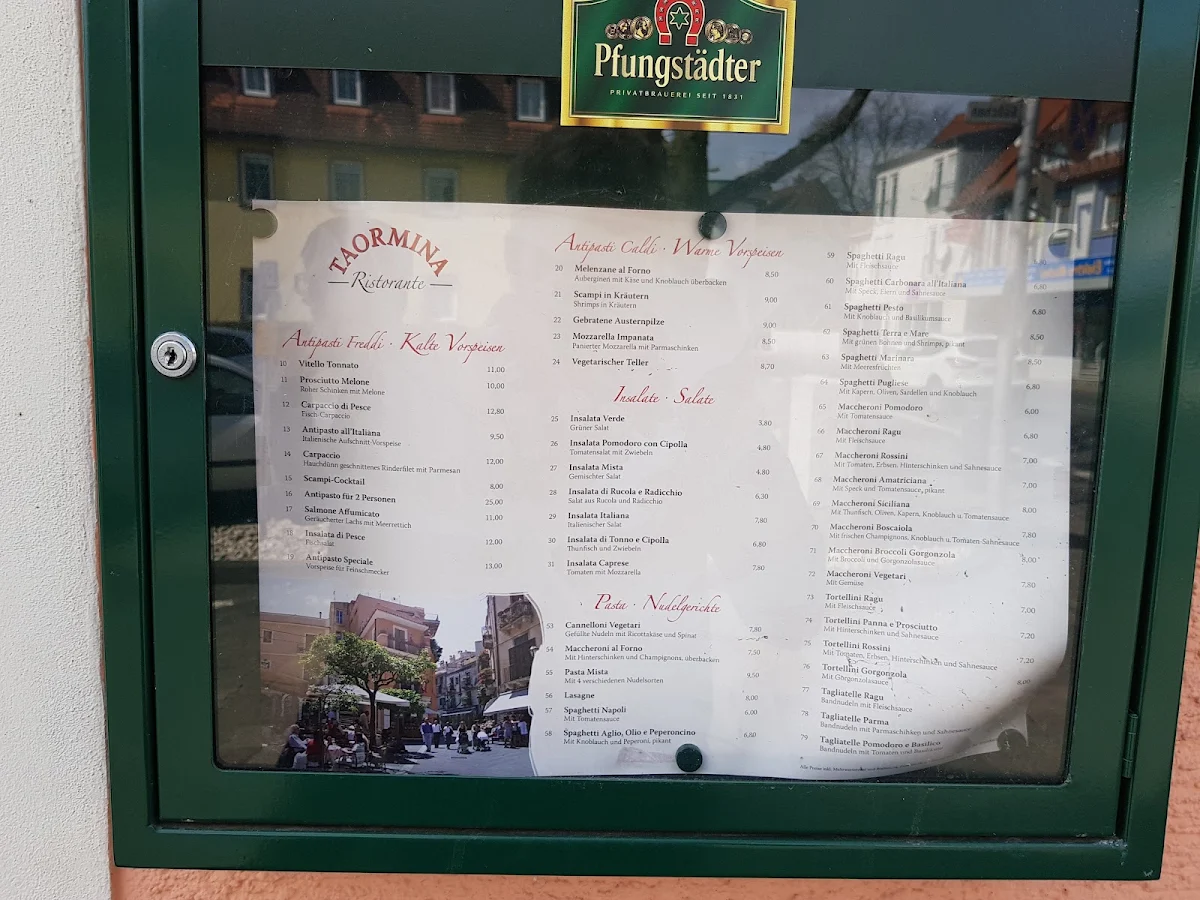 Pfungstädter
PRIVATBRAUEREI SEIT 1831
TAORMINA
Ristorante
Antipasti Freddi · Kalte Vorspeisen
10 Vitello Tonnato 11,00
11 Prosciutto Melone 10,00
Roher Schinken mit Melone
12 Carpaccio di Pesce 12,80
Fisch-Carpaccio
13 Antipasto all'Italiana 9,50
Italienische Aufschnitt-Vorspeise
14 Carpaccio 12,00
Hauchdünn geschnittenes Rinderfilet mit Parmesan
15 Scampi-Cocktail 8,00
16 Antipasto für 2 Personen 25,00
17 Salmone Affumicato 11,00
Geräucherter Lachs mit Meerrettich
18 Insalata di Pesce 12,00
Fischsalat
19 Antipasto Speciale 13,00
Vorspeise für Feinschmecker
Antipasti Caldi · Warme Vorspeisen
20 Melenzane al Forno 8,50
Auberginen mit Käse und Knoblauch überbacken
21 Scampi in Kräutern 9,00
Shrimps in Kräutern
22 Gebratene Austernpilze 9,00
23 Mozzarella Impanata 8,50
Panierter Mozzarella mit Parmaschinken
24 Vegetarischer Teller 8,70
Insalate · Salate
25 Insalata Verde 3,80
Grüner Salat
26 Insalata Pomodoro con Cipolla 4,80
Tomatensalat mit Zwiebeln
27 Insalata Mista 4,80
Gemischter Salat
28 Insalata di Rucola e Radicchio 6,30
Salat aus Rucola und Radicchio
29 Insalata Italiana 7,80
Italienischer Salat
30 Insalata di Tonno e Cipolla 6,80
Thunfisch und Zwiebeln
31 Insalata Caprese 7,80
Tomaten mit Mozzarella
Pasta · Nudelgerichte
53 Cannelloni Vegetari 7,80
Gefüllte Nudeln mit Ricottakäse und Spinat
54 Maccheroni al Forno 7,50
Mit Hinterschinken und Champignons, überbacken
55 Pasta Mista 9,50
Mit 4 verschiedenen Nudelsorten
56 Lasagne 8,00
57 Spaghetti Napoli 6,00
Mit Tomatensauce
58 Spaghetti Aglio, Olio e Peperoncino 6,80
Mit Knoblauch und Peperoni, pikant
59 Spaghetti Ragu
Mit Fleischsauce
60 Spaghetti Carbonara all'Italiana 6,80
Mit Speck, Eiern und Sahnesauce
61 Spaghetti Pesto 6,80
Mit Knoblauch und Basilikumsauce
62 Spaghetti Terra e Mare 8,50
Mit grünen Bohnen und Shrimps, pikant
63 Spaghetti Marinara 8,50
Mit Meeresfrüchten
64 Spaghetti Pugliese 6,80
Mit Kapern, Oliven, Sardellen und Knoblauch
65 Maccheroni Pomodoro 6,00
Mit Tomatensauce
66 Maccheroni Ragu 6,80
Mit Fleischsauce
67 Maccheroni Rossini 7,00
Mit Tomaten, Erbsen, Hinterschinken und Sahnesauce
68 Maccheroni Amatriciana 7,00
Mit Speck und Tomatensauce, pikant
69 Maccheroni Siciliana 8,00
Mit Thunfisch, Oliven, Kapern, Knoblauch u. Tomatensauce
70 Maccheroni Boscaiola 7,80
Mit frischen Champignons, Knoblauch u. Tomaten-Sahnesauce
71 Maccheroni Broccoli Gorgonzola 8,00
Mit Broccoli und Gorgonzolasauce
72 Maccheroni Vegetari 7,80
Mit Gemüse
73 Tortellini Ragu 7,00
Mit Fleischsauce
74 Tortellini Panna e Prosciutto 7,20
Mit Hinterschinken und Sahnesauce
75 Tortellini Rossini 7,20
Mit Tomaten, Erbsen, Hinterschinken und Sahnesauce
76 Tortellini Gorgonzola 8,00
Mit Gorgonzolasauce
77 Tagliatelle Ragu
Bandnudeln mit Fleischsauce
78 Tagliatelle Parma
Bandnudeln mit Parmaschinken und Sahnesauce
79 Tagliatelle Pomodoro e Basilico
Bandnudeln mit Tomaten und Basilikum
Alle Preise inkl.